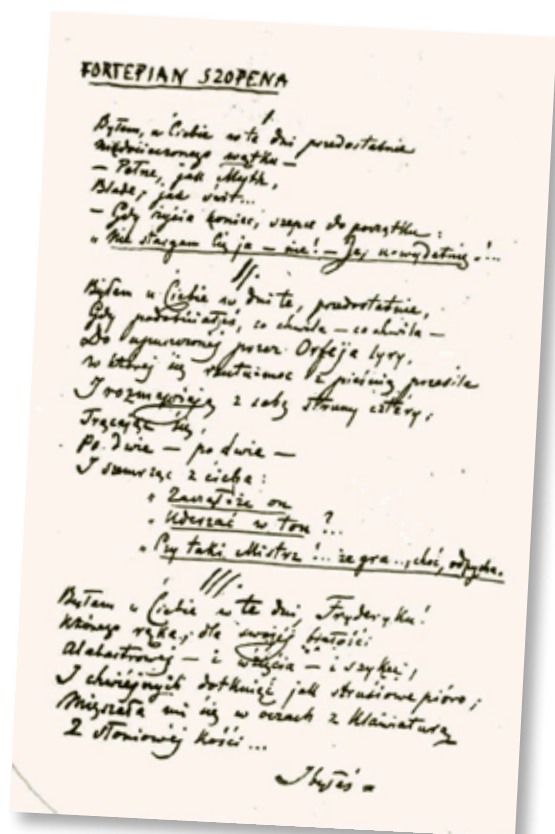 FORTEPIAN SZOPENA
I.
Byłem u Ciebie w te dni przedostatnie
Niedocieczonego wątku —
— Pełne, jak Myth,
Blade, jak świt...
— Gdy życia koniec, szepce do początku:
„Nie stargam Cię ja — nie! — Ja, u-wydatnię!...
II.
Byłem u Ciebie w dni te, przedostatnie,
Gdy podobniałeś, co chwila — co chwila —
Do upuszczonej przez Orfeja lyry,
W której się rzutu-moc z pieśnią przesila
I rozmawiają z sobą struny cztéry,
Trącając się,
Po dwie — po dwie —
I szemrząc z cicha:
„Zacząłże on
„Uderzać w ton?...
„Czy taki Mistrz!... że gra... choć, odpycha.
III.
Byłem u Ciebie w te dni, Fryderyku!
Którego ręka, dla swojéj białości
Alabastrowej — i wzięcia — i szyku,
I chwiejnych dotknięć jak strusiowe pióro,
Mięszała mi się w oczach z klawiaturą
Z słoniowej kości...
I byłeś =